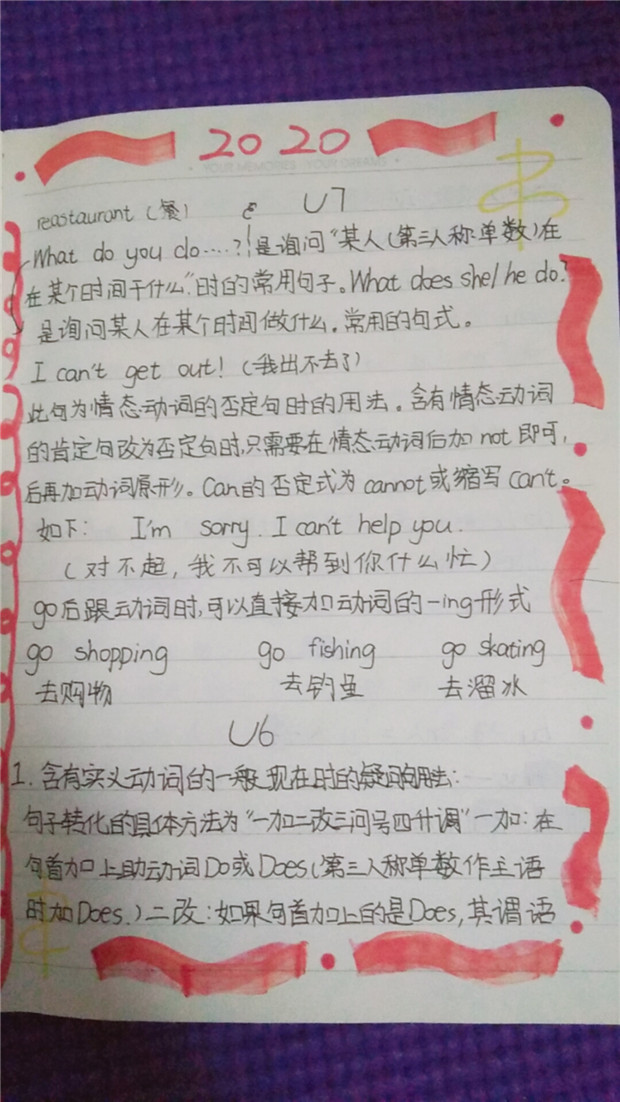 20 20
YOUR MEMORIES YOUR DREAMS
reastaurant (餐) U7
What do you do....? 是询问“某人(第三人称单数)在
在某个时间干什么”时的常用句子。What does she/he do?
是询问某人在某个时间做什么。常用的句式。
I can't get out! (我出不去了)
此句为情态动词的否定句时的用法。含有情态动词
的肯定句改为否定句时,只需要在情态动词后加not即可,
后再加动词原形。Can的否定式为cannot或缩写can't。
如下: I'm sorry. I can't help you.
(对不起,我不可以帮到你什么忙)
go后跟动词时,可以直接加动词的-ing形式
go shopping go fishing go skating
去购物 去钓鱼 去溜冰
U6
1. 含有实义动词的一般现在时的疑问句用法:
句子转化的具体方法为“一加二改三问号四升调”一加:在
句首加上助动词Do或Does(第三人称单数作主语
时加Does.)二改:如果句首加上的是Does,其谓语